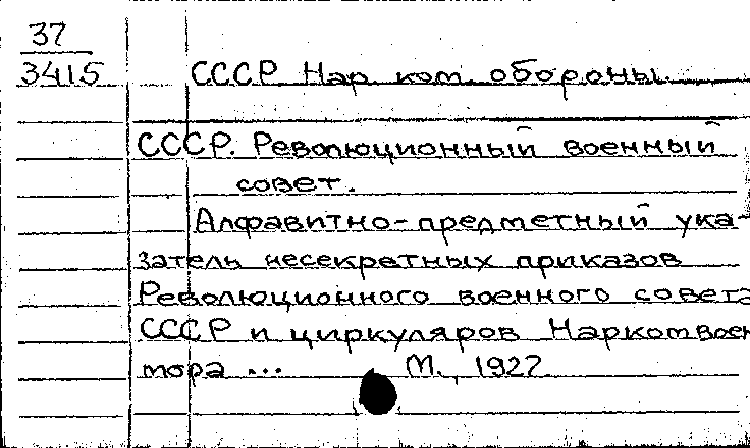 37
3415
СССР Нар. ком. обороны.
СССР. Революционный военный
совет.
Алфавитно-предметный ука-
затель несекретных приказов
Революционного военного совета
СССР и циркуляров Наркомвоен-
мора ... М., 1927